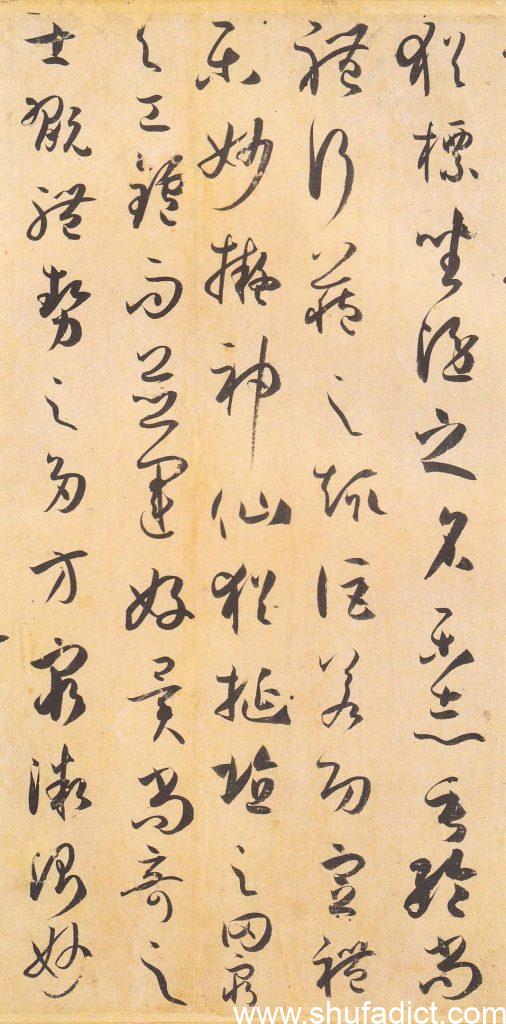 猶標坐隱之名樂志垂綸尚
體行藏之趣詎若功宣禮
樂妙擬神仙猶埏埴之罔窮
与工鑪而並運好異尚奇之
士翫體勢之多方窮微測妙
www.shufadict.com